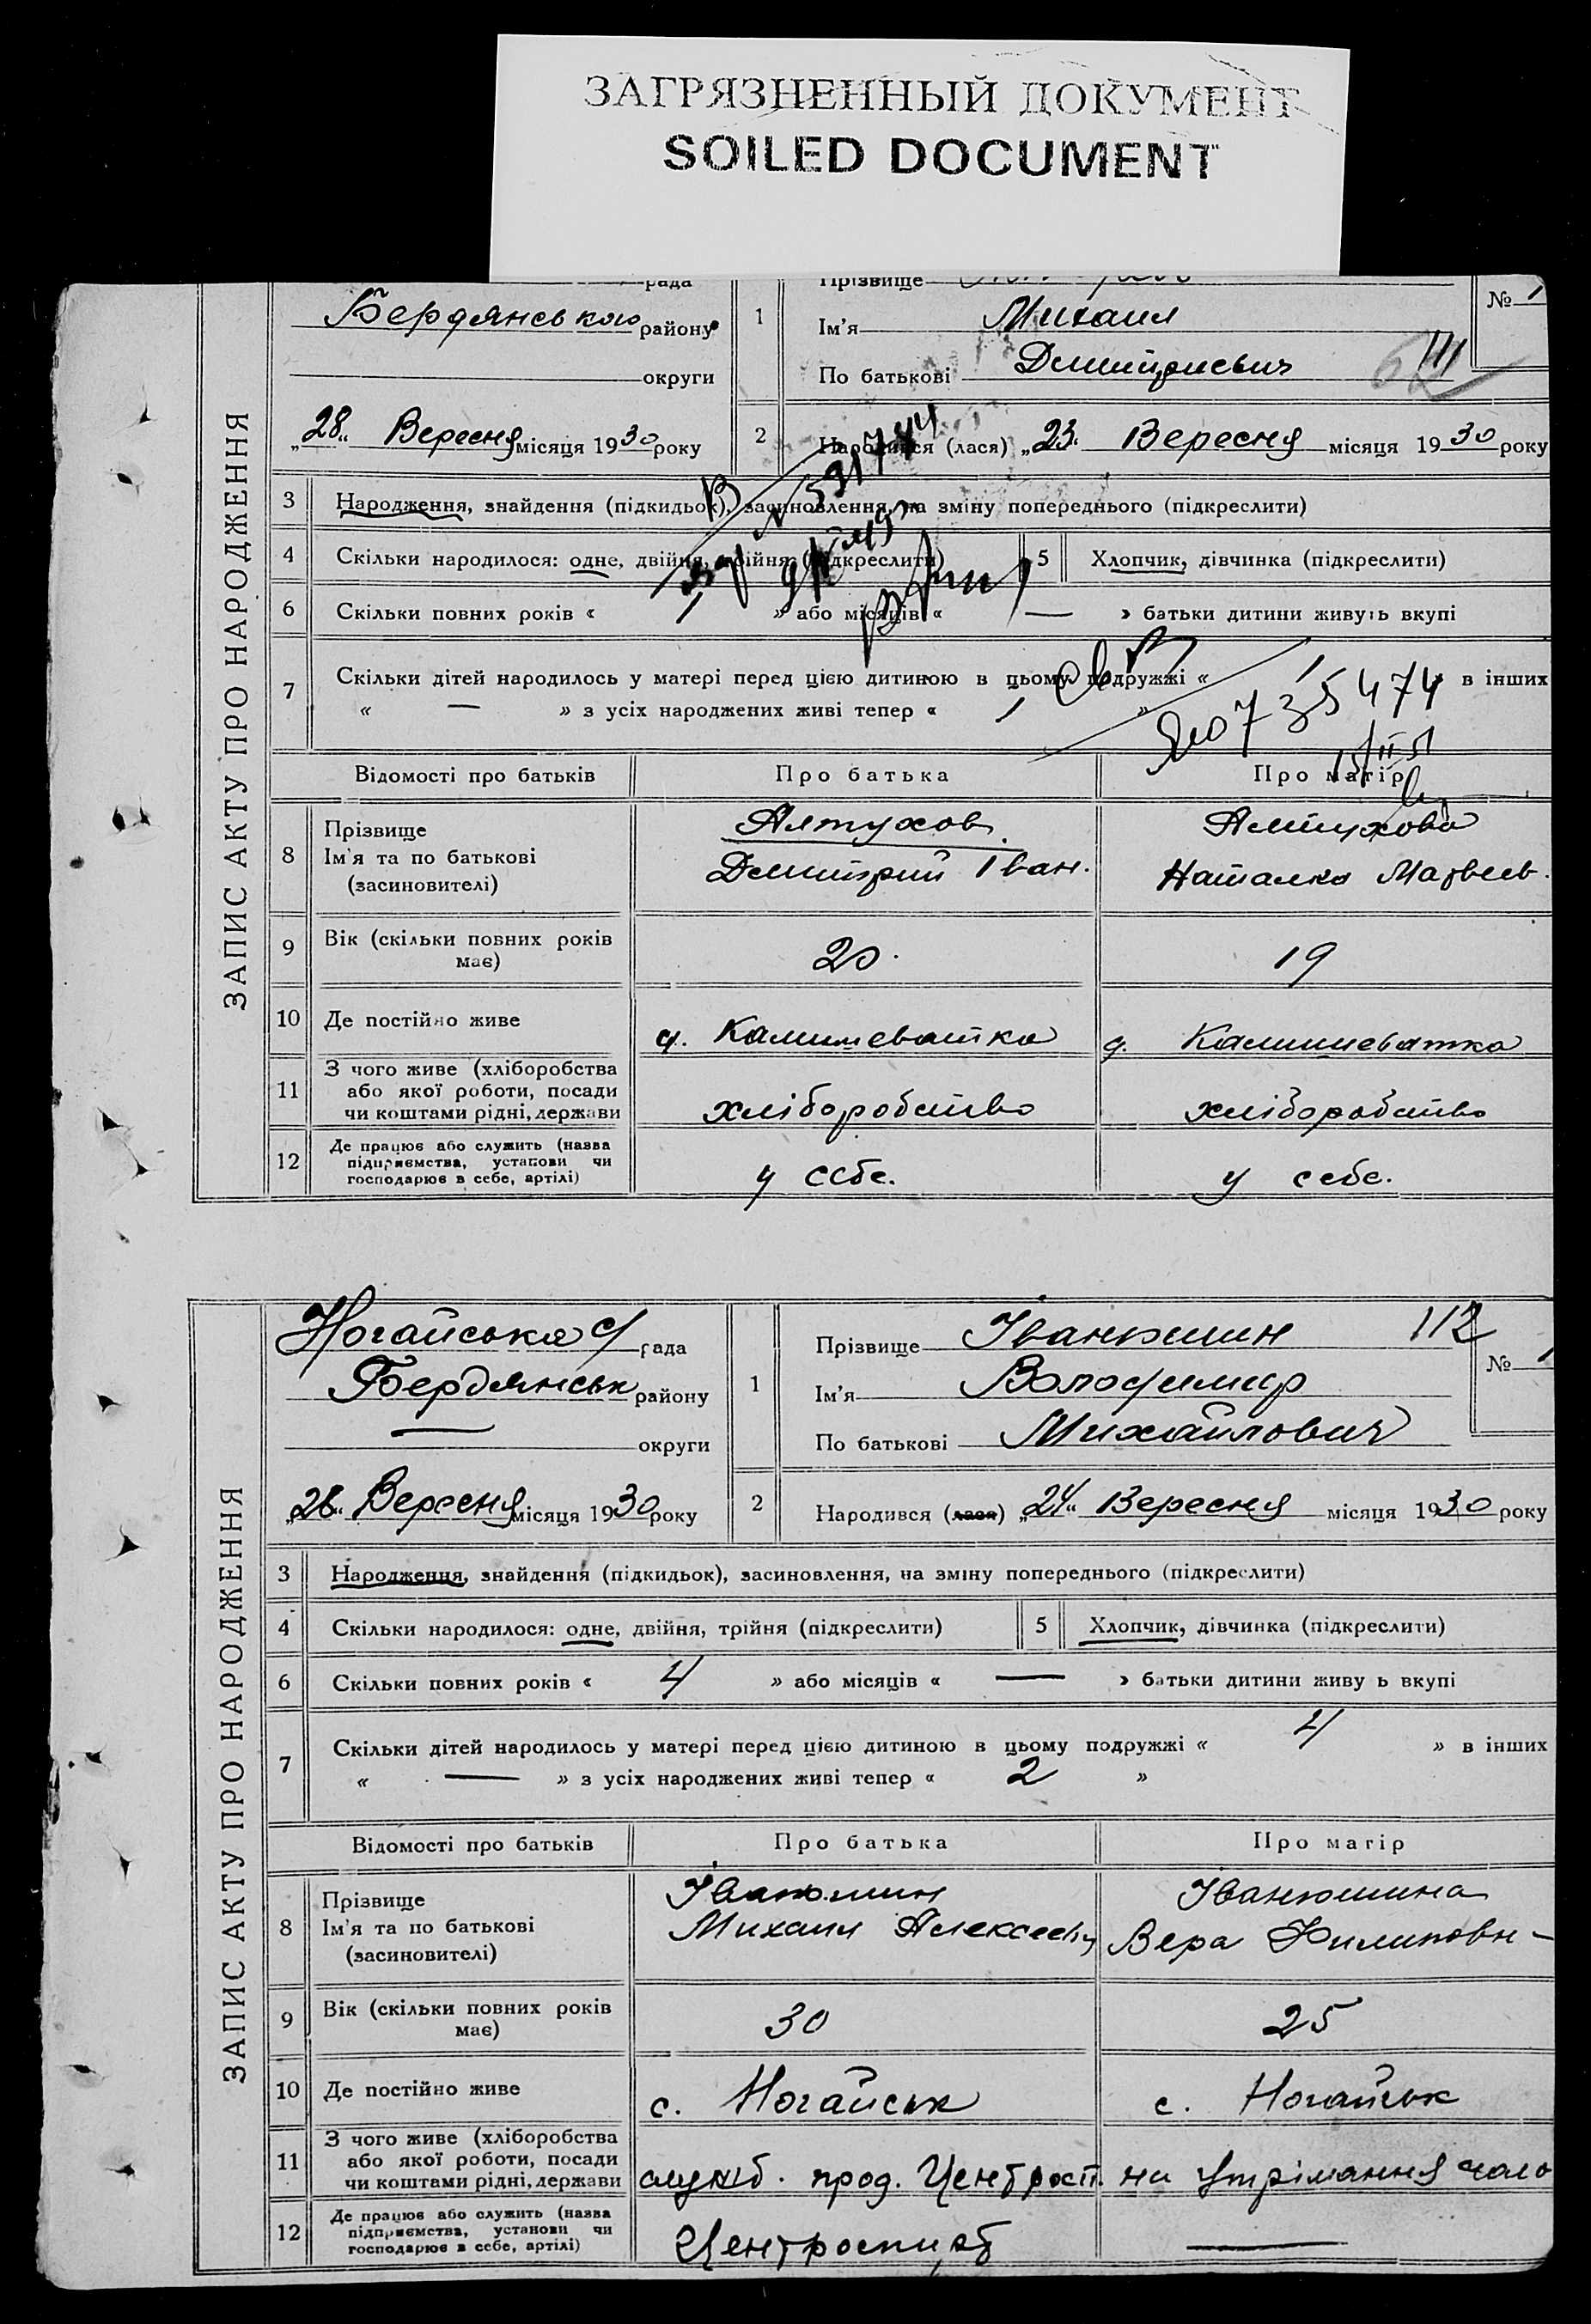 ЗАГРЯЗНЕННЫЙ ДОКУМЕНТ
SOILED DOCUMENT
ЗАПИС АКТУ ПРО НАРОДЖЕННЯ
рада
Бердянського району
округи
„28“ Вересня місяця 1930 року
1
Прізвище
Ім'я Михаил
По батькові Дмитриевич
№ 1
111
2
Народився (лася) „23“ Вересня місяця 1930 року
3 Народження, знайдення (підкидьок), засиновлення, на зміну попереднього (підкреслити)
4 Скільки народилося: одне, двійня, трійня (підкреслити)
5 Хлопчик, дівчинка (підкреслити)
6 Скільки повних років « 1 » або місяців « — » батьки дитини живуть вкупі
7 Скільки дітей народилось у матері перед цією дитиною в цьому подружжі « 1 » в інших
« — » з усіх народжених живі тепер « 1 »
735474
Відомості про батьків Про батька Про матір
8
Прізвище
Ім'я та по батькові
(засиновителі)
Алтухов
Дмитрий Іван.
Алтухова
Наталка Матвеев.
9
Вік (скільки повних років
має)
20.
19
10 Де постійно живе
Камишеватка
Камишеватка
11
З чого живе (хліборобства
або якої роботи, посади
чи коштами рідні, держави
хліборобство
хліборобство
12
Де працює або служить (назва
підприємства, установи чи
господарює в себе, артілі)
у себе.
у себе.
ЗАПИС АКТУ ПРО НАРОДЖЕННЯ
Ногайська с/ рада
Бердянськ району
— округи
„28“ Вересня місяця 1930 року
1
Прізвище Іванюшин
Ім'я Володимир
По батькові Михайлович
112
№ 1
2
Народився (лася) „24“ Вересня місяця 1930 року
3 Народження, знайдення (підкидьок), засиновлення, на зміну попереднього (підкреслити)
4 Скільки народилося: одне, двійня, трійня (підкреслити)
5 Хлопчик, дівчинка (підкреслити)
6 Скільки повних років « 4 » або місяців « — » батьки дитини живу ь вкупі
7 Скільки дітей народилось у матері перед цією дитиною в цьому подружжі « 4 » в інших
« — » з усіх народжених живі тепер « 2 »
Відомості про батьків Про батька Про матір
8
Прізвище
Ім'я та по батькові
(засиновителі)
Іванюшин
Михаил Алексеевич
Іванюшина
Вера Филиповн-
9
Вік (скільки повних років
має)
30
25
10 Де постійно живе
с. Ногайськ
с. Ногайськ
11
З чого живе (хліборобства
або якої роботи, посади
чи коштами рідні, держави
служб. прод. Центросп.
на утрімання чоло
12
Де працює або служить (назва
підприємства, установи чи
господарює в себе, артілі)
Центроспирт
—